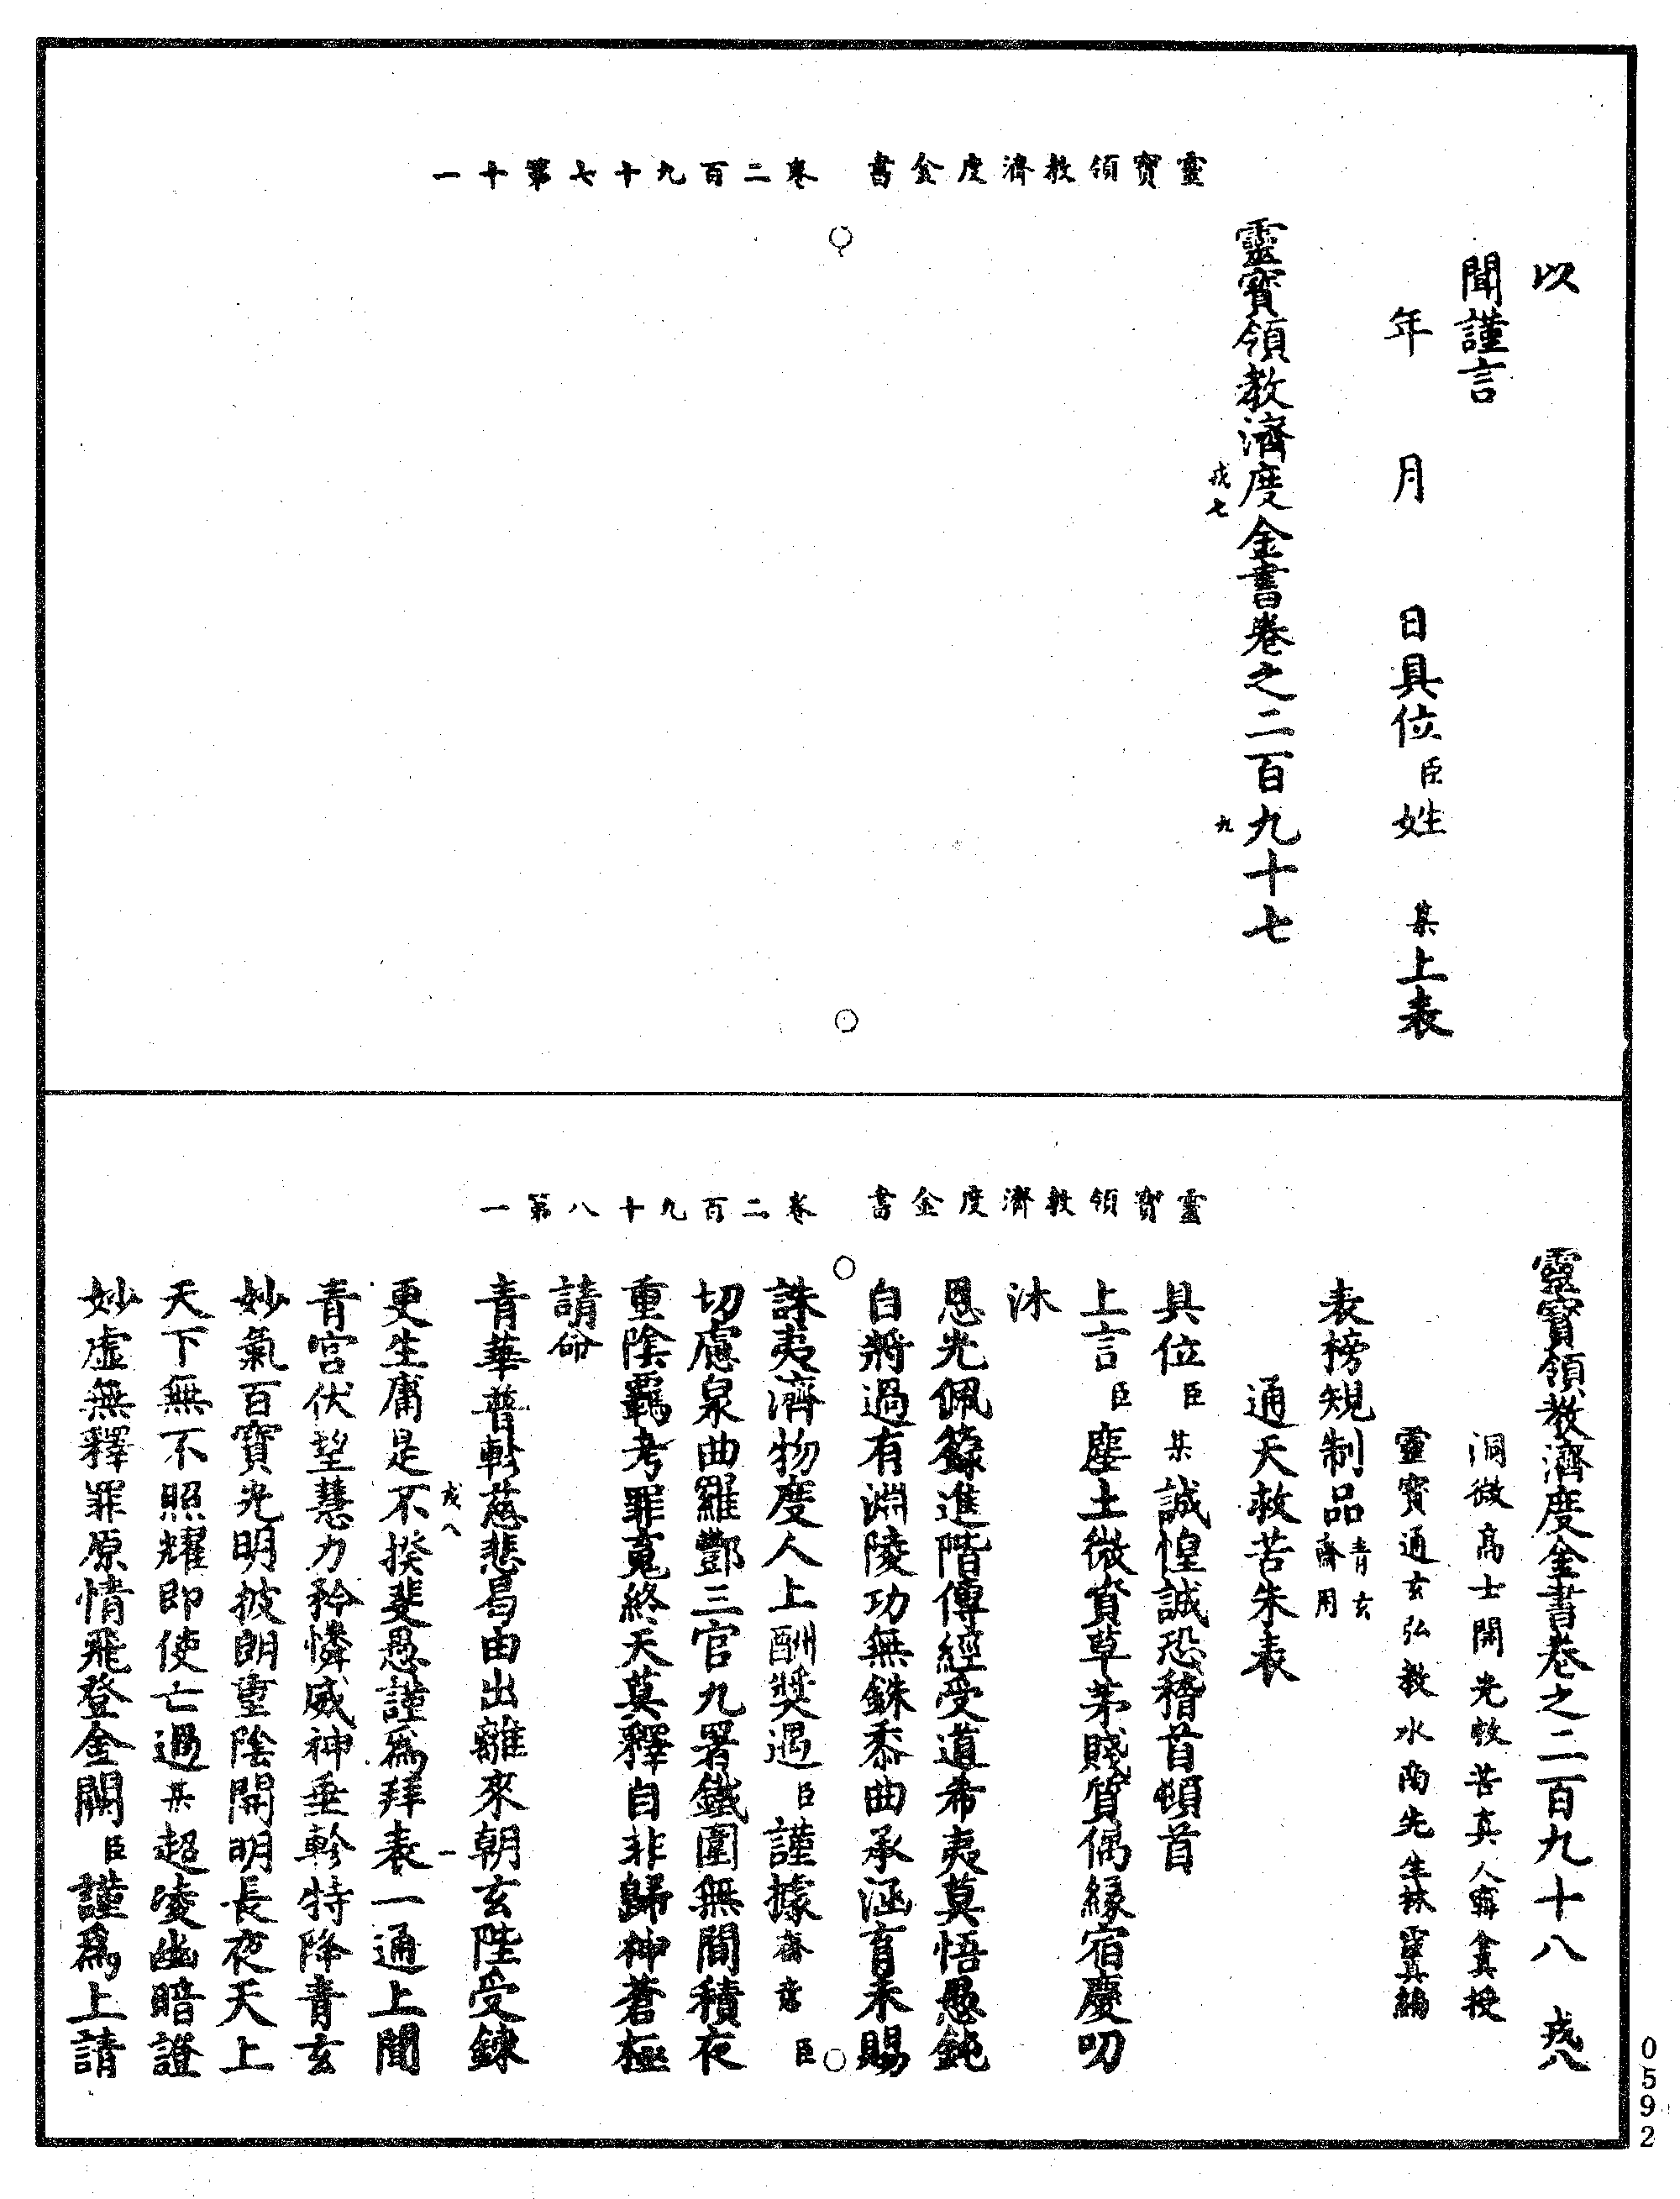 靈寶領教濟度金書　卷二百九十七第十一
以
聞謹言
年　月　日具位臣姓　某上表
靈寶領教濟度金書卷之二百九十七
戎七
九
靈寶領教濟度金書　卷二百九十八第一
靈寶領教濟度金書卷之二百九十八　戎八
洞微高士開光救苦真人甯全真授
靈寶通玄弘教水南先生林靈真編
表榜規制品青玄齋用
通天救苦朱表
具位臣某誠惶誠恐稽首頓首
上言臣塵土微資草茅賤質偶緣宿慶叨
沐
恩光佩籙進階傳經受道希夷莫悟愚鈍
自將過有淵陵功無銖黍曲承涵育未賜
誅夷濟物度人上酬獎遇臣謹據齋意臣
切慮泉曲羅酆三官九署鐵圍無間積夜
重陰羈考罪䰟終天莫釋自非歸神蒼極
請命
青華普軫慈悲曷由出離來朝玄陛受鍊
更生庸是不揆斐愚謹為拜表一通上聞
戎八
一
青宮伏望慧力矜憐威神垂軫特降青玄
妙氣百寶光明披朗重陰開明長夜天上
天下無不照耀即使亡過某超凌幽暗證
妙虛無釋罪原情飛登金闕臣謹為上請
0592